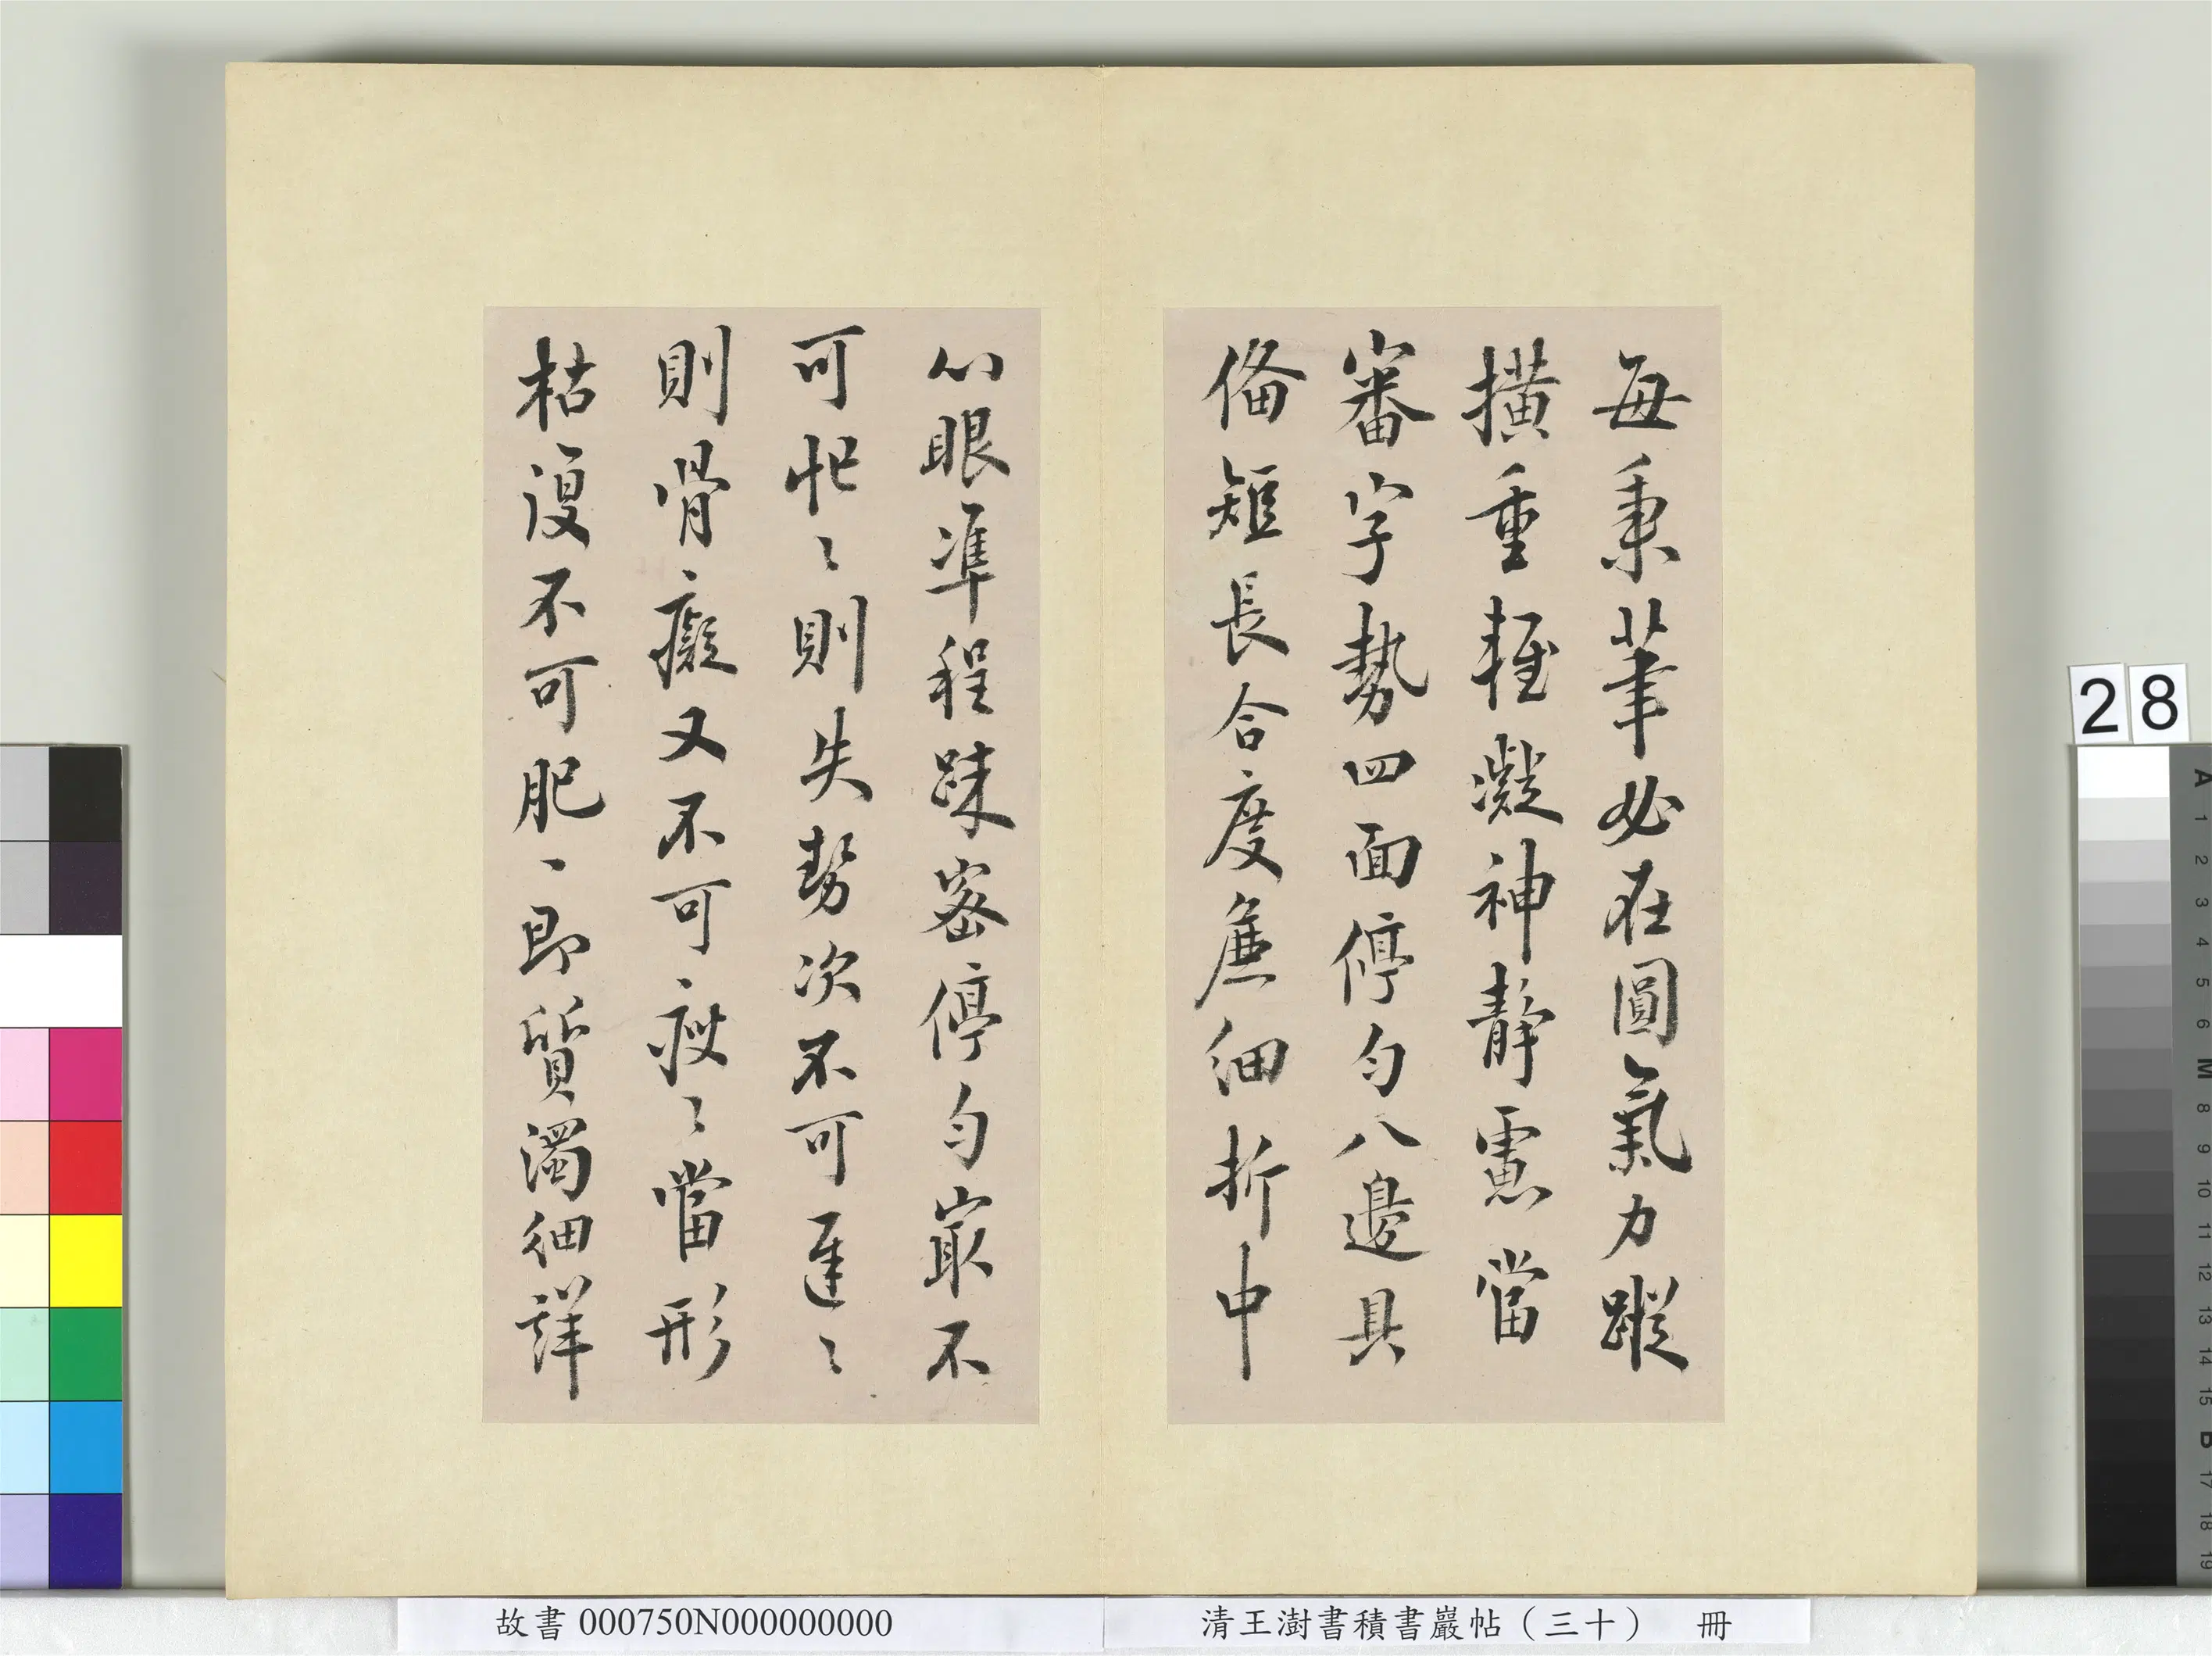 每秉筆必在圓氣力蹤
撗重輕凝神靜慮當
審字勢四面停勻八邊具
俻短長合度麁細折中
心眼準程踈密停勻㝡不
可忙〻則失勢次不可遲〻
則骨癡又不可瘦〻當形
枯復不可肥〻即質濁細詳
故書000750N000000000
清王澍書積書巖帖（三十） 冊
28
A
1
2
3
4
5
6
M
8
9
10
11
12
13
14
15
B
17
18
19